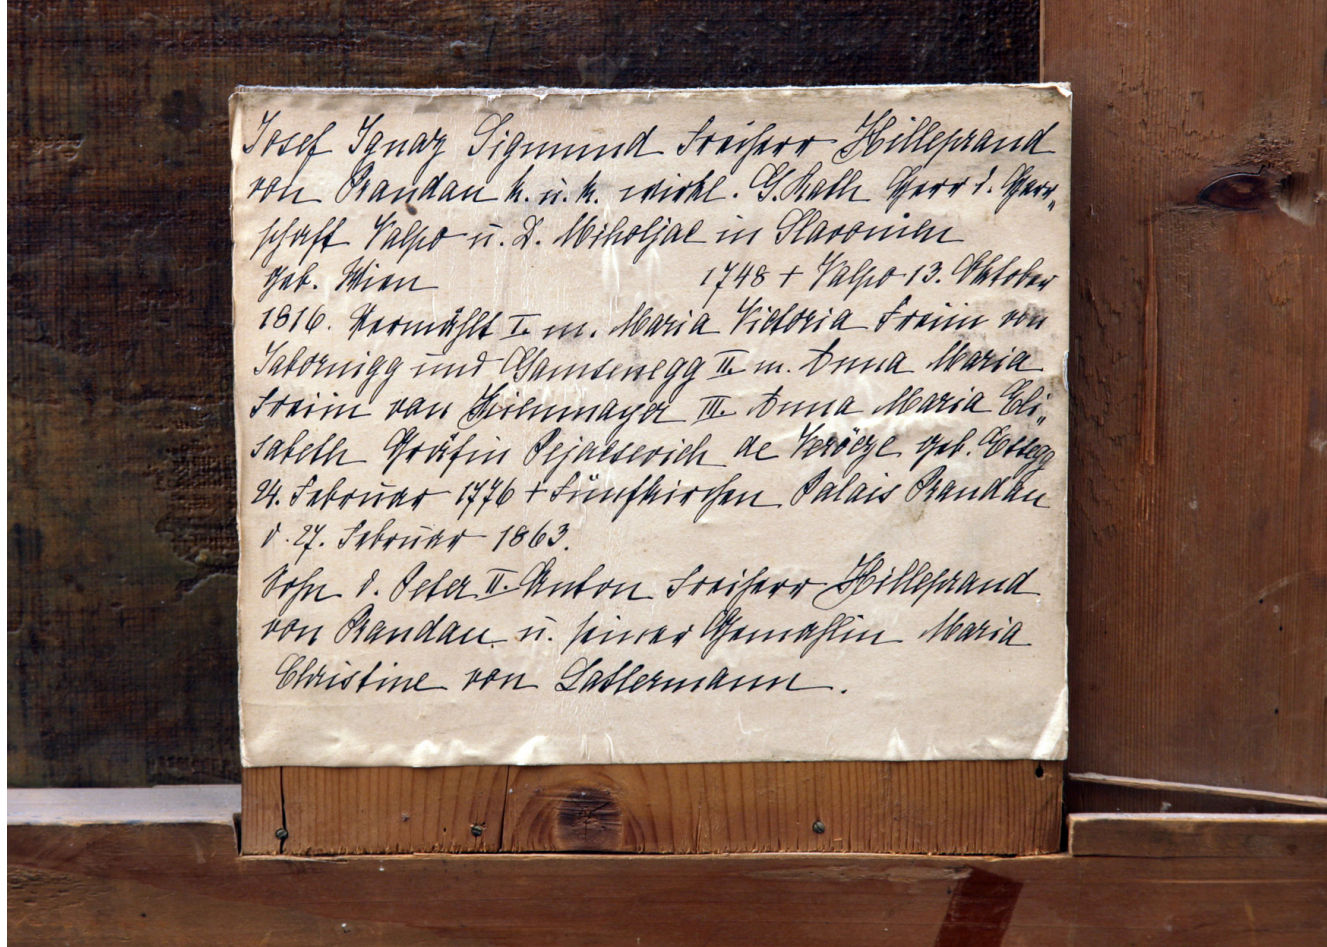 Josef Ignaz Sigmund Freiherr Hilleprand
von Prandau k. u. k. wirkl. G. Rath Herr d. Herr„
schaft Valpo u. D. Miholjac in Slavonien
geb. Wien 1748 + Valpo 13. Oktober
1816. Vermählt I. m. Maria Victoria Freiin von
Jabornigg und Gamsenegg II. m. Anna Maria
Freiin von Kienmayer III. Anna Maria Eli„
sabeth Gräfin Pejacsevich de Veröcze geb. Essegg
24. Februar 1776 + Fünfkirchen Palais Prandau
d. 27. Februar 1863.
Sohn d. Peter II. Anton Freiherr Hilleprand
von Prandau u. seiner Gemahlin Maria
Christine von Lattermann.